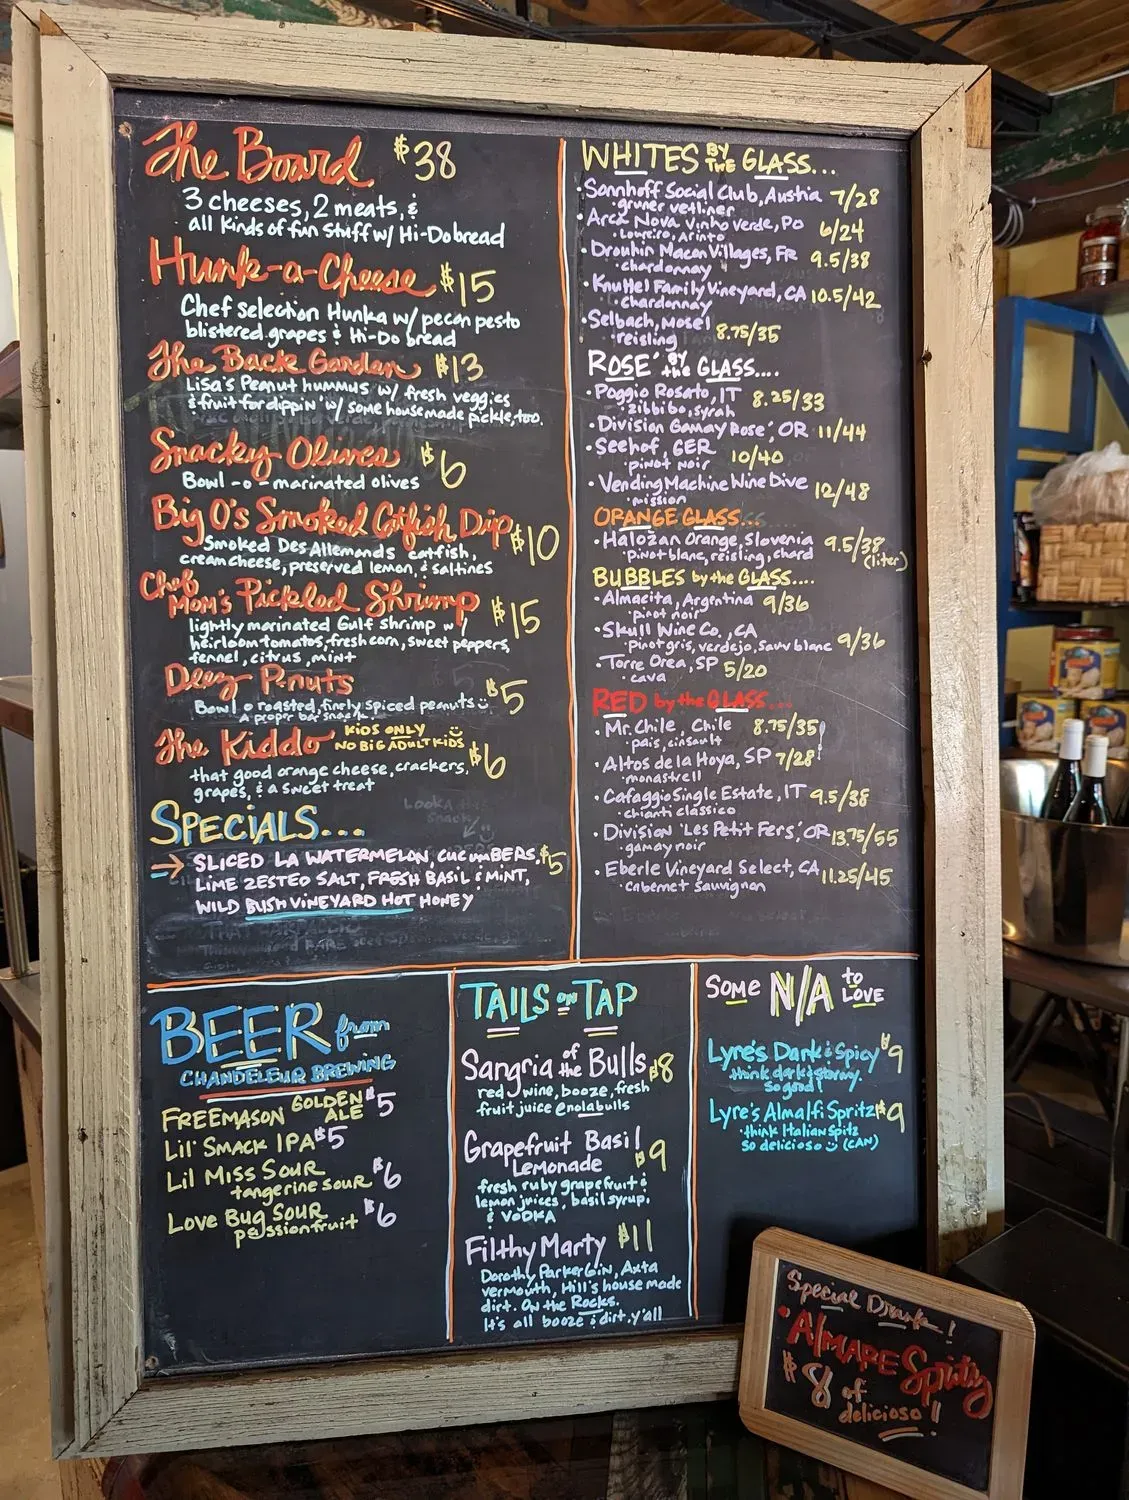 The Board $38
3 cheeses, 2 meats, &
all kinds of fun stuff w/ Hi-Do bread
Hunk-a-Cheese $15
Chef selection Hunka w/ pecan pesto
blistered grapes & Hi-Do bread
The Back Garden $13
Lisa's Peanut hummus w/ fresh veggies
& fruit for dippin' w/ some housemade pickle, too.
Snacky Olives $6
Bowl -o- marinated olives
Big O's Smoked Catfish Dip $10
Smoked Des Allemands catfish,
cream cheese, preserved lemon, & saltines
Chef
Mom's Pickled Shrimp $15
lightly marinated Gulf shrimp w/
heirloom tomatos, fresh corn, sweet peppers,
fennel, citrus, mint
Deez P-nuts $5
Bowl o roasted, finely spiced peanuts
a proper bar snack
The Kiddo KIDS ONLY $6
NO BIG ADULT KIDS
that good orange cheese, crackers,
grapes, & a sweet treat
SPECIALS...
SLICED LA WATERMELON, CUCUMBERS, $5
LIME ZESTED SALT, FRESH BASIL & MINT,
WILD BUSH VINEYARD HOT HONEY
WHITES BY THE GLASS...
• Sonnhoff Social Club, Austria 7/28
• gruner vetliner
• Arca Nova Vinho Verde, Po 6/24
• Loureiro, Arinto
• Drouhin Macon Villages, FR 9.5/38
• chardonnay
• Knuttel Family Vineyard, CA 10.5/42
• chardonnay
Selbach, Mosel 8.75/35
• reisling
ROSE' BY the GLASS....
• Poggio Rosato, IT 8.25/33
• zibbibo, syrah
• Division Gamay Rose', OR 11/44
• Seehof, GER 10/40
• pinot noir
• Vending Machine Wine Dive 12/48
• mission
ORANGE GLASS...
• Halozan Orange, Slovenia 9.5/38
• pinot blanc, reisling, chard (liter)
BUBBLES by the GLASS....
• Almacita, Argentina 9/36
• pinot noir
• Skull Wine Co., CA 9/36
• pinot gris, verdejo, sauv blanc
• Torre Orea, SP 5/20
• cava
RED by the GLASS...
• Mr. Chile, Chile 8.75/35
• pais, cinsault
• Altos de la Hoya, SP 7/28
• monastrell
• Cafaggio Single Estate, IT 9.5/38
• chianti classico
• Division 'Les Petit Fers', OR 13.75/55
• gamay noir
• Eberle Vineyard Select, CA 11.25/45
• cabernet sauvignon
BEER from
CHANDELEUR BREWING
FREEMASON GOLDEN ALE $5
Lil' Smack IPA $5
Lil Miss Sour $6
tangerine sour
Love Bug Sour $6
passionfruit
TAILS on TAP
Sangria of the Bulls $8
red wine, booze, fresh
fruit juice @nolabulls
Grapefruit Basil
Lemonade $9
fresh ruby grapefruit &
lemon juices, basil syrup,
& VODKA
Filthy Marty $11
Dorothy Parker Gin, Axta
vermouth, Hill's house made
dirt. On the Rocks.
It's all booze & dirt, y'all
SOME N/A to LOVE
Lyre's Dark & Spicy $9
think dark & stormy.
so good!
Lyre's Almalfi Spritz $9
think Italian Spitz
so delicioso (CAN)
Special Drank!
• A/MARE Spritz
$8 of
delicioso!!